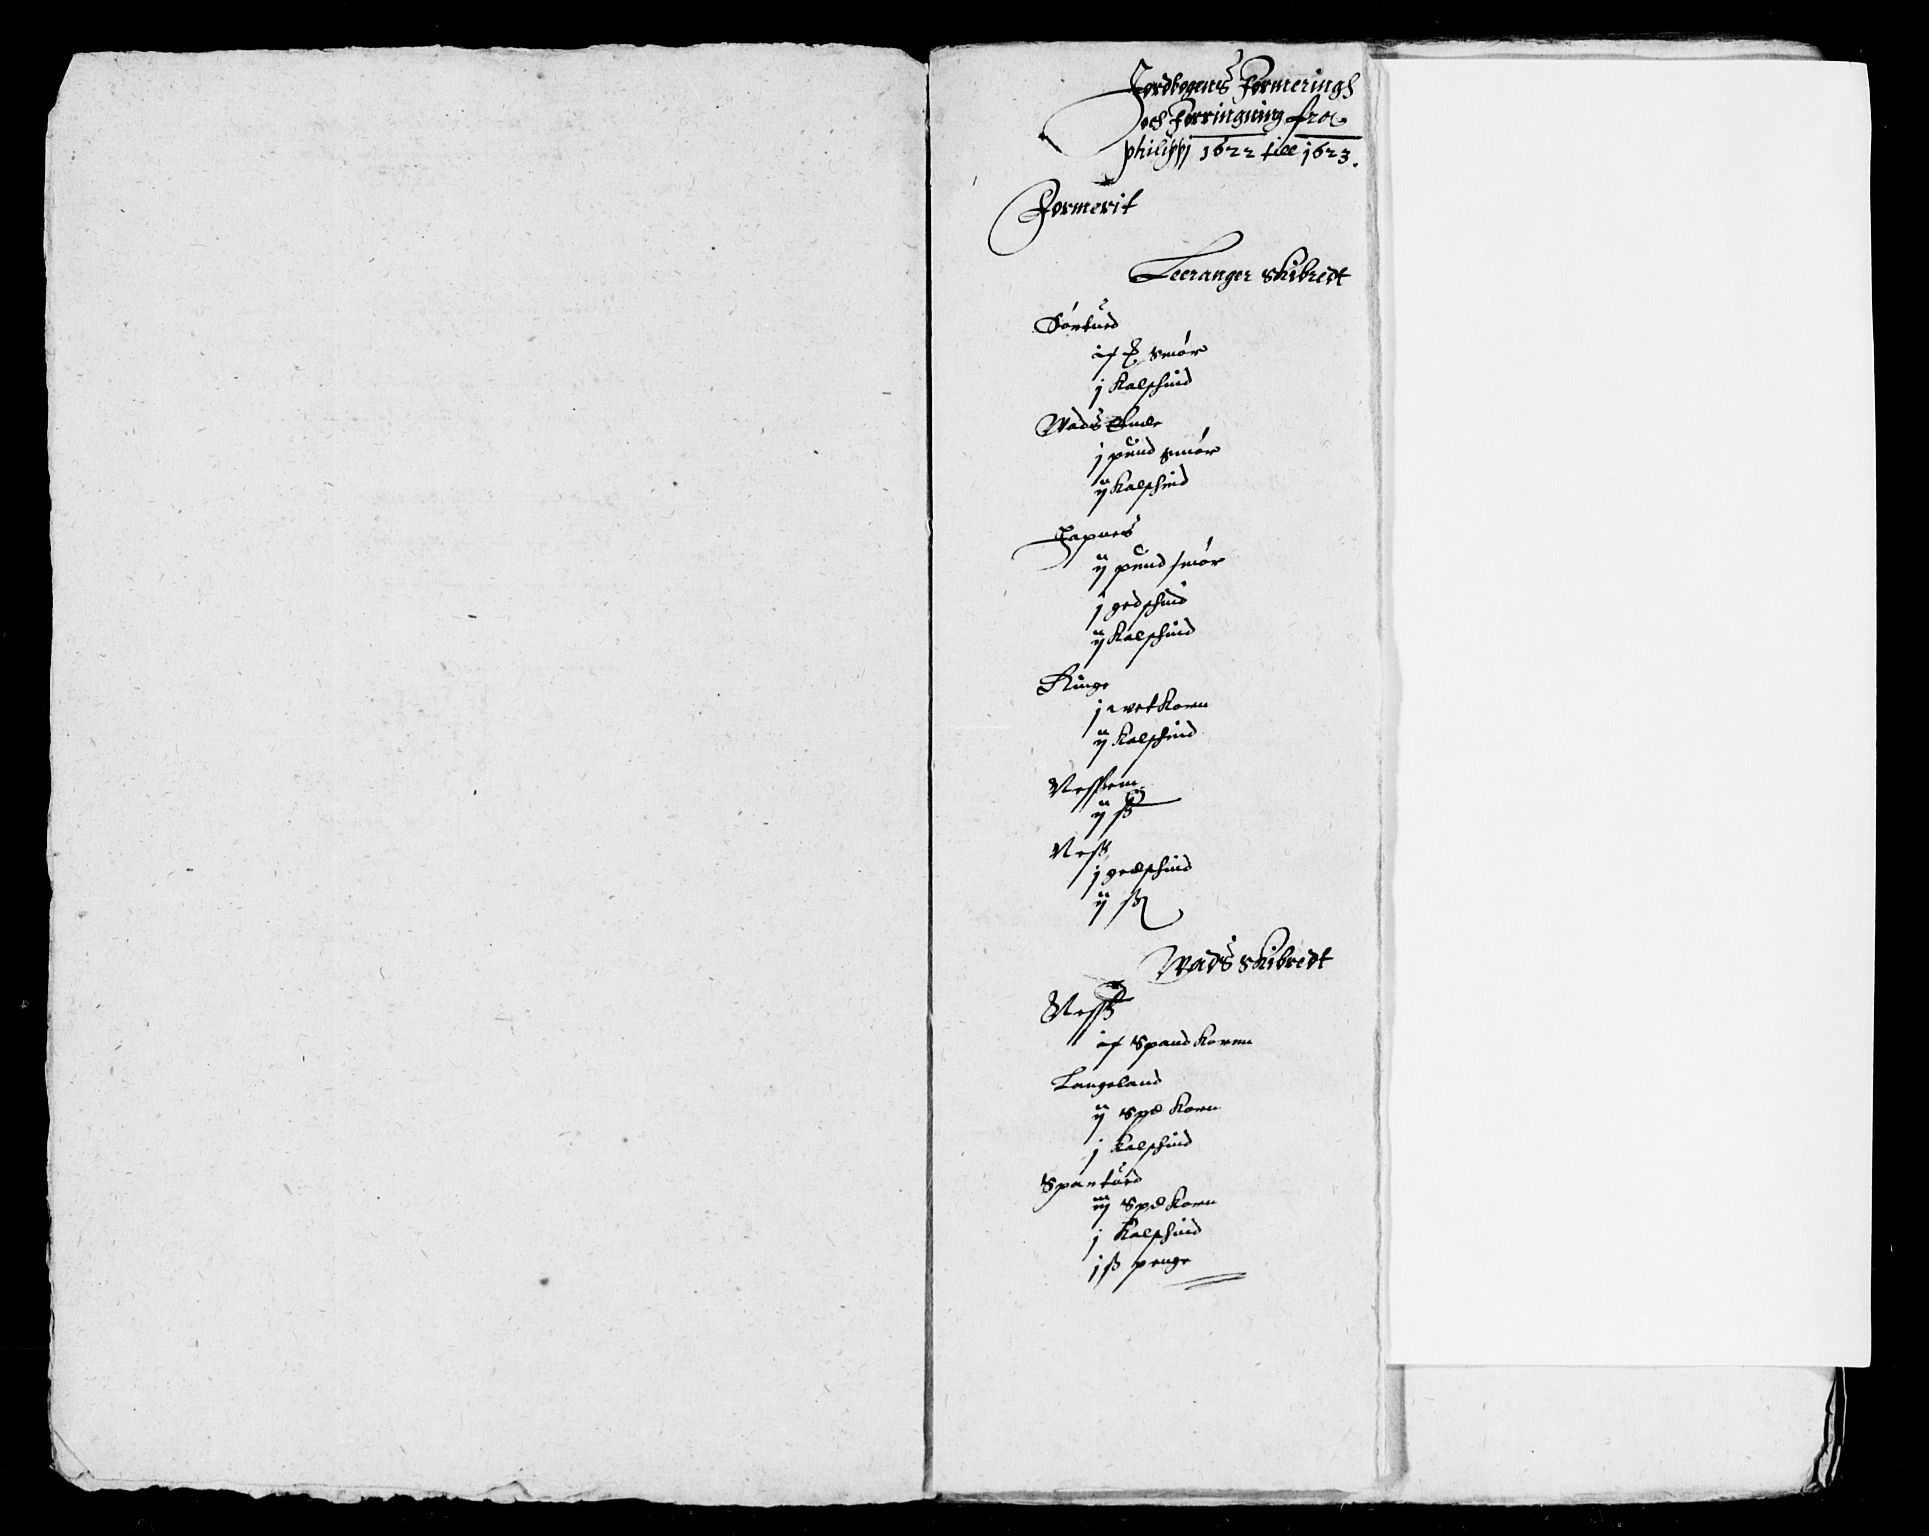 Jordbogens Formeringh
och Forringning fra
philippj 1622 till 1623.
Formerit
Leeranger skibredt
Sørtued
smør
j Kalfskind
Wads Ende
j pund smør
ij Kalfskind
Fapnes
ij pund smør
j gedskind
ij Kalfskind
Ringe
j wet Korn
ij Kalfskind
Nessem
ij ß
Ness
j gedskind
ij ß
Wads skibredt
Ness
Spand Korn
Langeland
ij Spd Korn
j Kalfskind
Spantued
iij Spd Korn
j Kalfskind
j ß penge